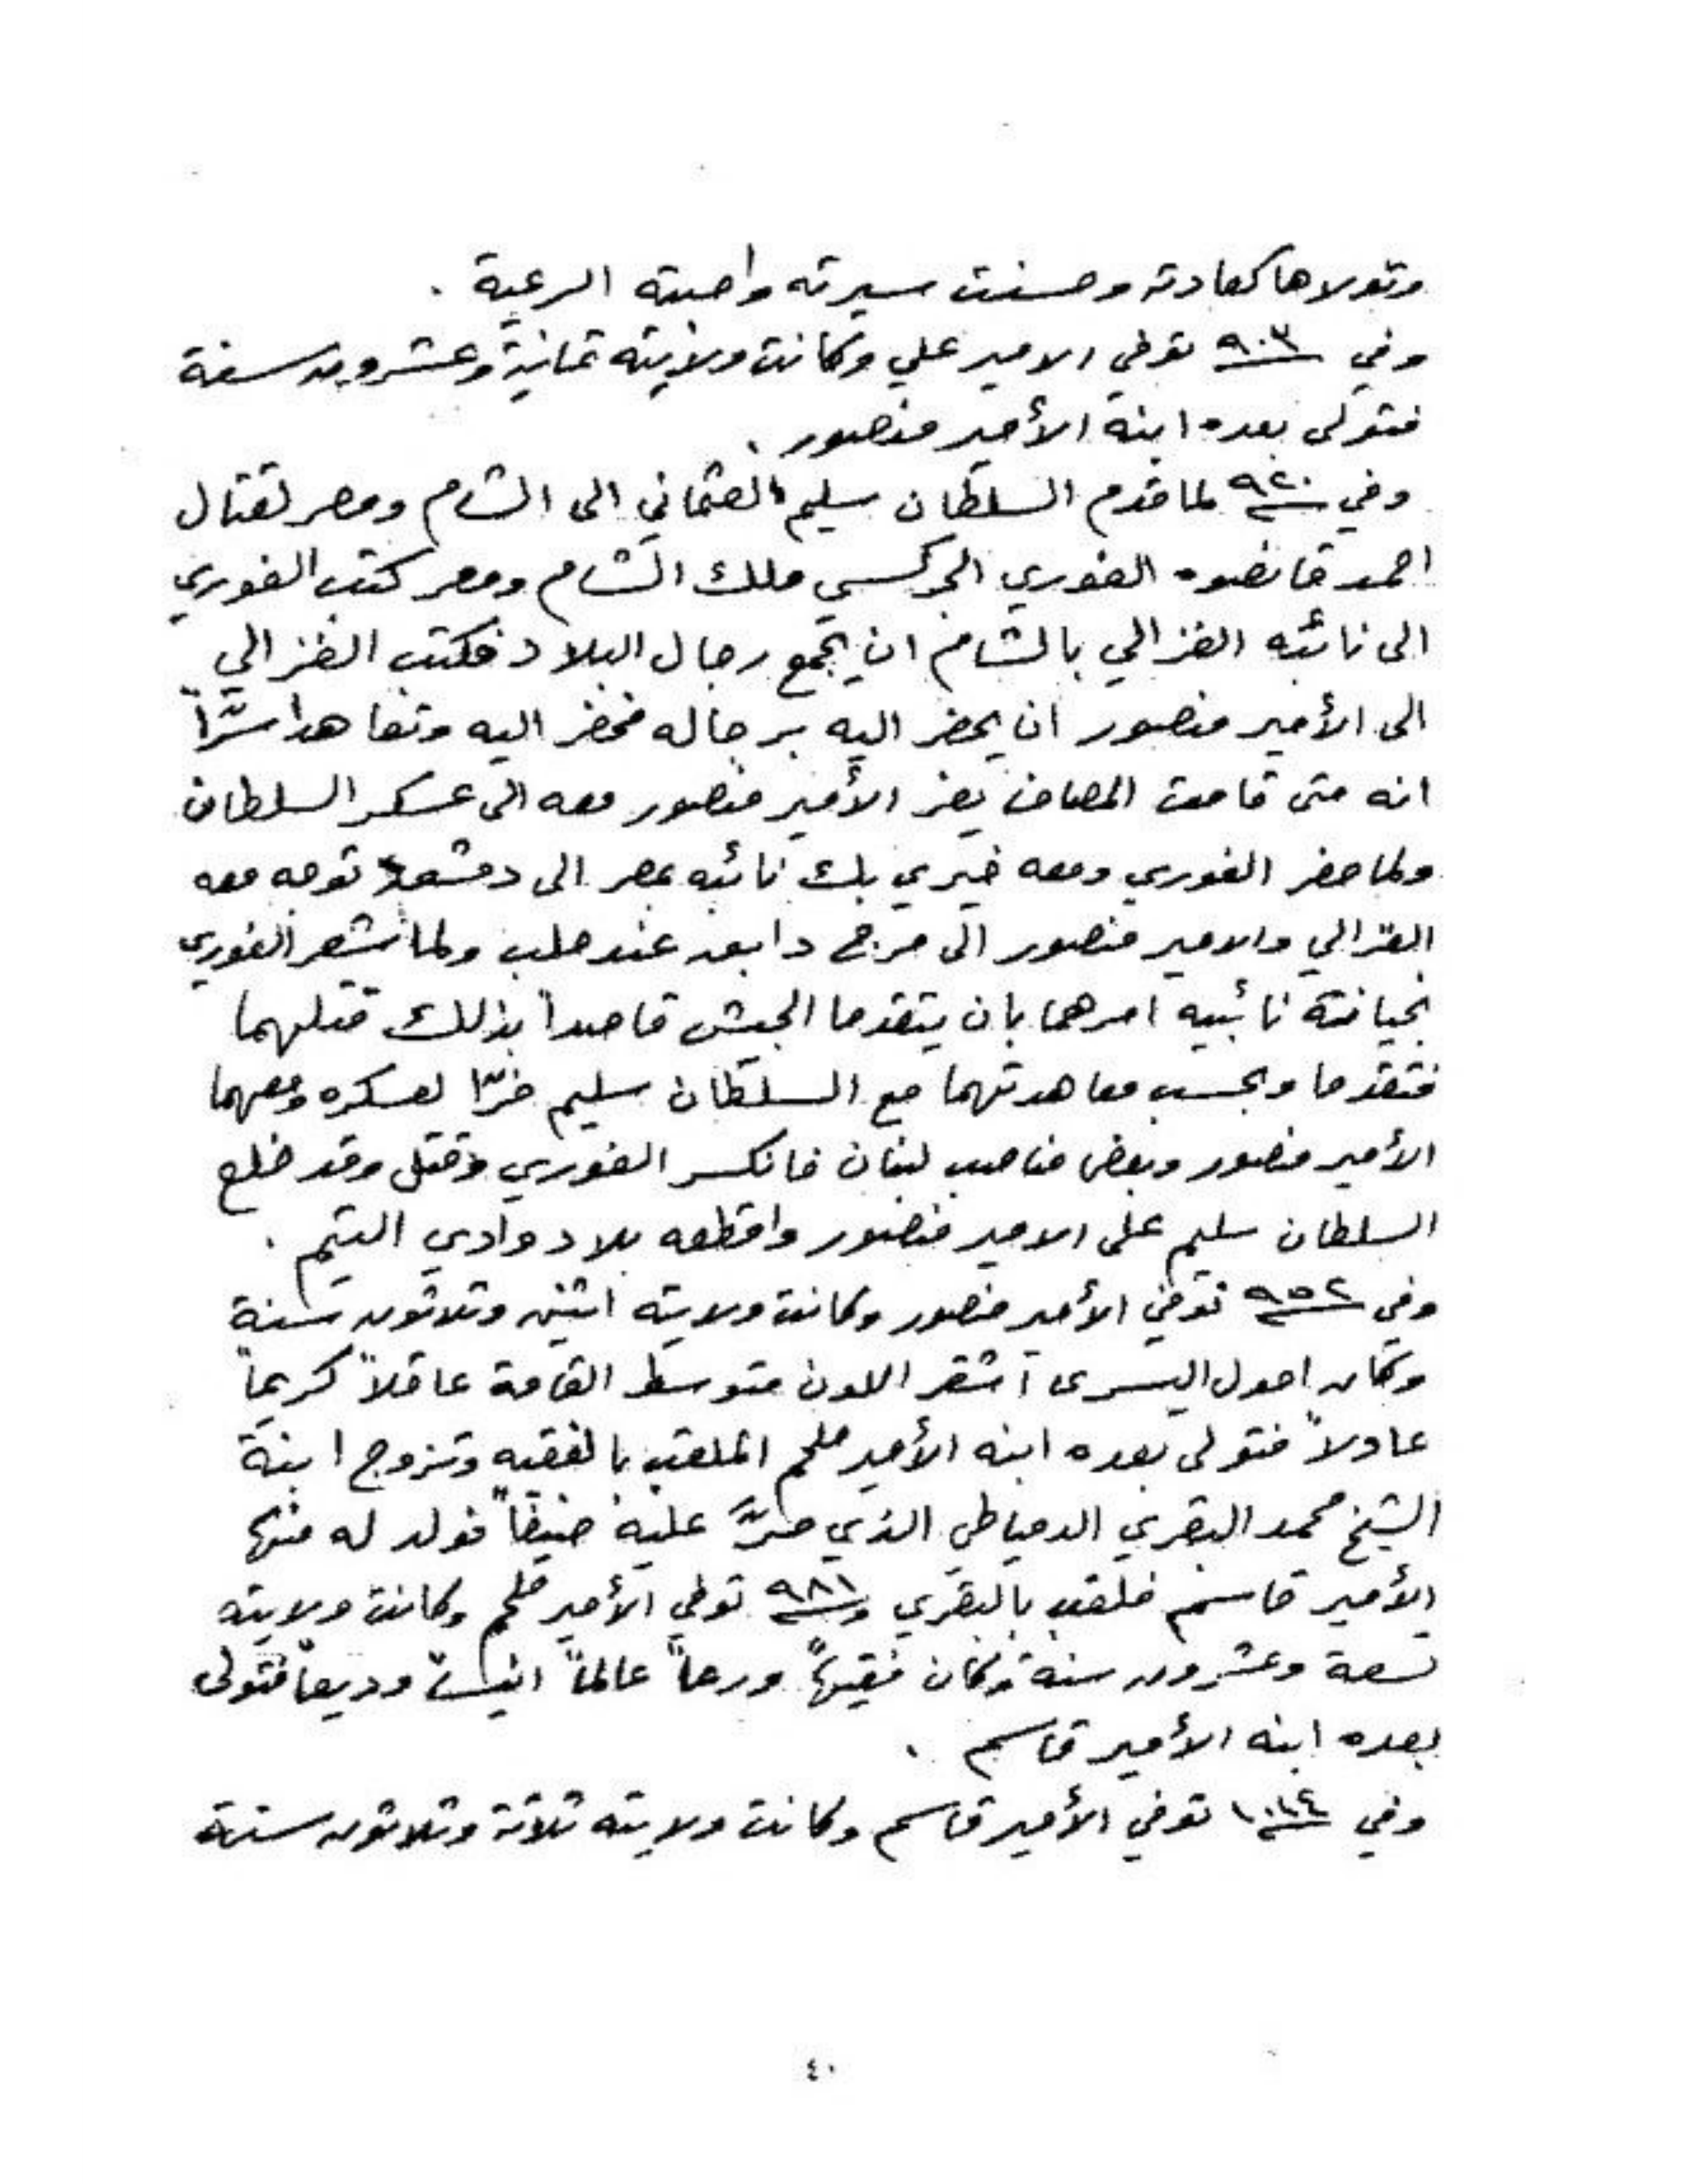 وتولاها كعادته وحسنت سيرته واحبته الرعية .
وفي ٩٠٣ توفي الامير علي وكانت ولايته ثمانية وعشرون سنة
فتولى بعده ابنه الأمير منصور .
وفي ٩٢٠ لما قدم السلطان سليم العثماني الى الشام ومصر لقتال
احمد قانصوه الغوري الجركسي ملك الشام ومصر كتب الغوري
الى نائبه الغزالي بالشام ان يجمع رجال البلاد فكتب الغزالي
الى الأمير منصور ان يحضر اليه برجاله فحضر اليه وتعاهدا سرّاً
انه متى قامت المصاف يفر الأمير منصور معه الى عسكر السلطان
ولما حضر الغوري ومعه خيري بك نائبه بمصر الى دمشق توجه معه
الغزالي والامير منصور الى مرج دابق عند حلب ولما شعر الغوري
بخيانة نائبيه امرهما بان يتقدما الجيش قاصداً بذلك قتلهما
فتقدما وبحسب معاهدتهما مع السلطان سليم فرّا لعسكره ومعهما
الأمير منصور وبعض مناصب لبنان فانكسر الغوري وقتل وقد خلع
السلطان سليم على الامير منصور واقطعه بلاد وادي التيم .
وفي ٩٥٢ توفي الأمير منصور وكانت ولايته اثنين وثلاثون سنة
وكان احول اليسرى أشقر اللون متوسط القامة عاقلاً كريماً
عادلاً فتولى بعده ابنه الأمير ملحم الملقب بالفقيه وتزوج ابنة
الشيخ محمد البقري الدمياطي الذي مرَّ عليه ضيفاً فولد له منها
الأمير قاسم فلقب بالبقري و٩٨١ توفي الأمير ملحم وكانت ولايته
تسعة وعشرون سنة وكان فقيهاً ورعاً عالماً انيساً وديعاً فتولى
بعده ابنه الأمير قاسم .
وفي ١٠١٤ توفي الأمير قاسم وكانت ولايته ثلاثة وثلاثون سنة
٤٠